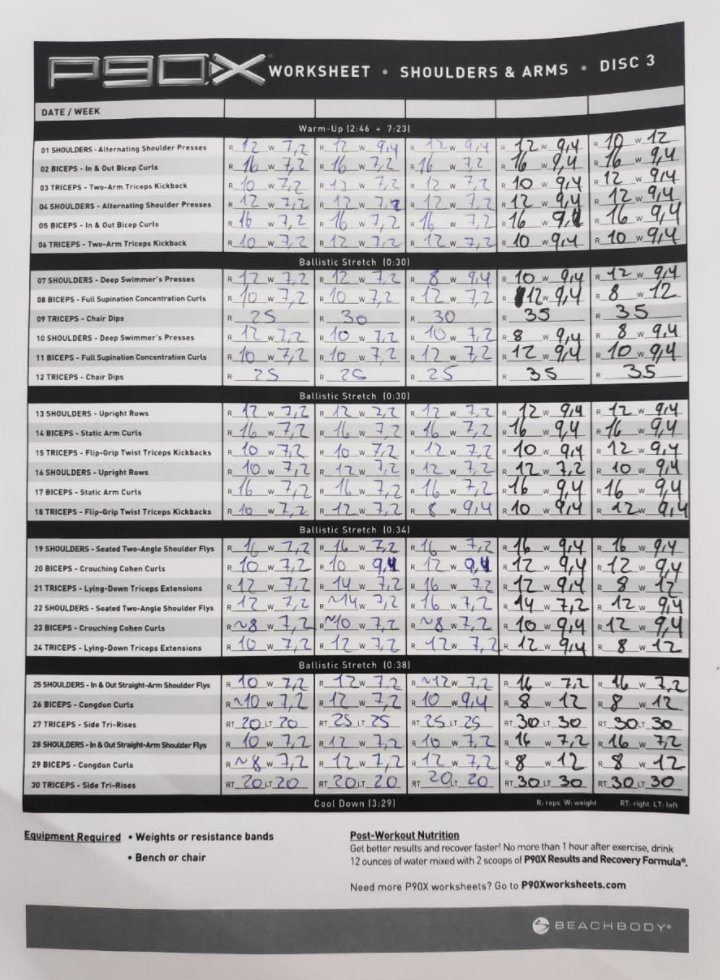 P90X® WORKSHEET • SHOULDERS & ARMS • DISC 3
DATE / WEEK
Warm-Up (2:46 + 7:23)
01 SHOULDERS - Alternating Shoulder Presses R 12 W 7,2 R 12 W 9,4 R 12 W 9,4 R 12 W 9,4 R 10 W 12
02 BICEPS - In & Out Bicep Curls R 16 W 7,2 R 16 W 7,2 R 16 W 7,2 R 16 W 9,4 R 16 W 9,4
03 TRICEPS - Two-Arm Triceps Kickback R 10 W 7,2 R 12 W 7,2 R 12 W 7,2 R 10 W 9,4 R 12 W 9,4
04 SHOULDERS - Alternating Shoulder Presses R 12 W 7,2 R 12 W 7,2 R 12 W 7,2 R 12 W 9,4 R 12 W 9,4
05 BICEPS - In & Out Bicep Curls R 16 W 7,2 R 16 W 7,2 R 16 W 7,2 R 16 W 9,4 R 16 W 9,4
06 TRICEPS - Two-Arm Triceps Kickback R 10 W 7,2 R 12 W 7,2 R 12 W 7,2 R 10 W 9,4 R 10 W 9,4
Ballistic Stretch (0:30)
07 SHOULDERS - Deep Swimmer's Presses R 12 W 7,2 R 12 W 7,2 R 8 W 9,4 R 10 W 9,4 R 12 W 9,4
08 BICEPS - Full Supination Concentration Curls R 10 W 7,2 R 10 W 7,2 R 12 W 7,2 R 12 W 9,4 R 8 W 12
09 TRICEPS - Chair Dips R 25 R 30 R 30 R 35 R 35
10 SHOULDERS - Deep Swimmer's Presses R 12 W 7,2 R 10 W 7,2 R 10 W 7,2 R 8 W 9,4 R 8 W 9,4
11 BICEPS - Full Supination Concentration Curls R 10 W 7,2 R 10 W 7,2 R 12 W 7,2 R 12 W 9,4 R 10 W 9,4
12 TRICEPS - Chair Dips R 25 R 25 R 25 R 35 R 35
Ballistic Stretch (0:30)
13 SHOULDERS - Upright Rows R 12 W 7,2 R 12 W 7,2 R 12 W 7,2 R 12 W 9,4 R 12 W 9,4
14 BICEPS - Static Arm Curls R 16 W 7,2 R 16 W 7,2 R 16 W 7,2 R 16 W 9,4 R 16 W 9,4
15 TRICEPS - Flip-Grip Twist Triceps Kickbacks R 10 W 7,2 R 10 W 7,2 R 12 W 7,2 R 10 W 9,4 R 12 W 9,4
16 SHOULDERS - Upright Rows R 10 W 7,2 R 12 W 7,2 R 12 W 7,2 R 12 W 7,2 R 10 W 9,4
17 BICEPS - Static Arm Curls R 16 W 7,2 R 16 W 7,2 R 16 W 7,2 R 16 W 9,4 R 16 W 9,4
18 TRICEPS - Flip-Grip Twist Triceps Kickbacks R 10 W 7,2 R 12 W 7,2 R 8 W 9,4 R 10 W 9,4 R 12 W 9,4
Ballistic Stretch (0:34)
19 SHOULDERS - Seated Two-Angle Shoulder Flys R 16 W 7,2 R 16 W 7,2 R 16 W 7,2 R 16 W 9,4 R 16 W 9,4
20 BICEPS - Crouching Cohen Curls R 10 W 7,2 R 10 W 9,4 R 12 W 9,4 R 12 W 9,4 R 12 W 9,4
21 TRICEPS - Lying-Down Triceps Extensions R 12 W 7,2 R 14 W 7,2 R 16 W 7,2 R 12 W 9,4 R 8 W 12
22 SHOULDERS - Seated Two-Angle Shoulder Flys R 12 W 7,2 R ~14 W 7,2 R 16 W 7,2 R 14 W 7,2 R 12 W 9,4
23 BICEPS - Crouching Cohen Curls R ~8 W 7,2 R ~10 W 7,2 R ~8 W 7,2 R 10 W 9,4 R 12 W 9,4
24 TRICEPS - Lying-Down Triceps Extensions R 10 W 7,2 R 12 W 7,2 R 12 W 7,2 R 12 W 9,4 R 8 W 12
Ballistic Stretch (0:38)
25 SHOULDERS - In & Out Straight-Arm Shoulder Flys R 10 W 7,2 R 12 W 7,2 R ~12 W 7,2 R 16 W 7,2 R 16 W 7,2
26 BICEPS - Congdon Curls R ~10 W 7,2 R 12 W 7,2 R 10 W 9,4 R 8 W 12 R 8 W 12
27 TRICEPS - Side Tri-Rises RT 20 LT 20 RT 25 LT 25 RT 25 LT 25 RT 30 LT 30 RT 30 LT 30
28 SHOULDERS - In & Out Straight-Arm Shoulder Flys R 10 W 7,2 R 12 W 7,2 R 10 W 7,2 R 16 W 7,2 R 16 W 7,2
29 BICEPS - Congdon Curls R ~8 W 7,2 R 12 W 7,2 R 12 W 7,2 R 8 W 12 R 8 W 12
30 TRICEPS - Side Tri-Rises RT 20 LT 20 RT 20 LT 20 RT 20 LT 20 RT 30 LT 30 RT 30 LT 30
Cool Down (3:29) R: reps W: weight RT: right LT: left
Equipment Required • Weights or resistance bands
• Bench or chair
Post-Workout Nutrition
Get better results and recover faster! No more than 1 hour after exercise, drink
12 ounces of water mixed with 2 scoops of P90X Results and Recovery Formula®.
Need more P90X worksheets? Go to P90Xworksheets.com
BEACHBODY®